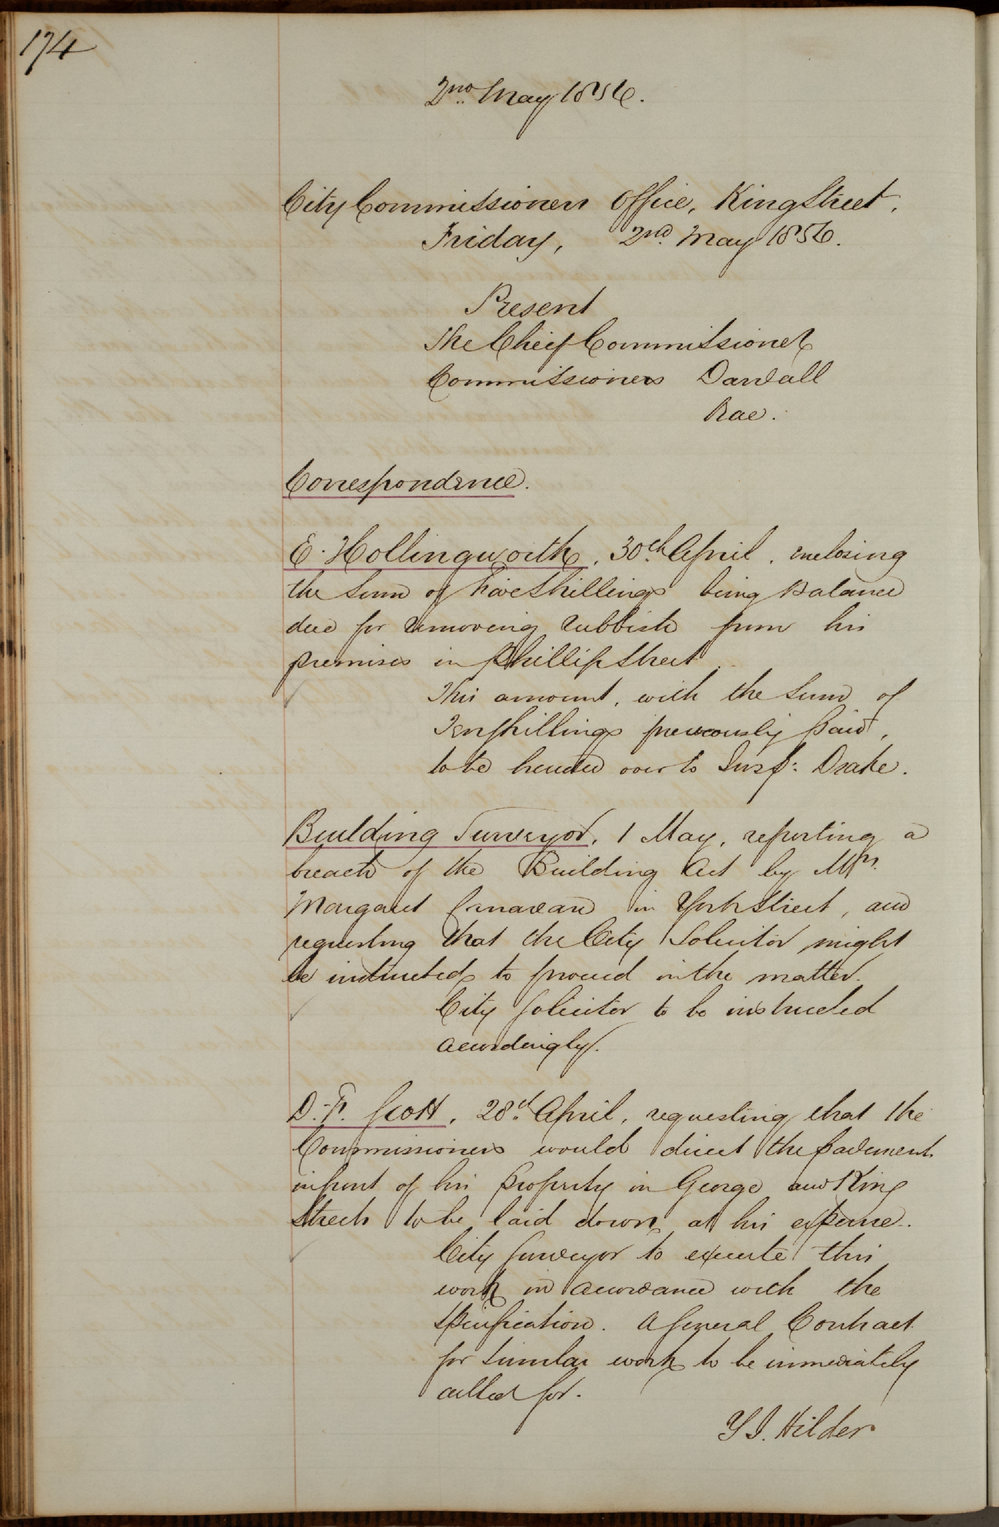 174
2nd. May 1856.
City Commissioners Office, King Street,
Friday, 2nd. May 1856.
Present
The Chief Commissioner
Commissioners Darvall
Rae.
Correspondence.
E. Hollingworth, 30th. April, enclosing
the sum of Five Shillings being Balance
due for removing rubbish from his
premises in Phillip Street
This amount, with the sum of
Ten shillings previously paid,
to be handed over to Insp: Drake.
Building Surveyor, 1 May, reporting a
breach of the Building Act by Mrs.
Margaret in York Street, and
requesting that the City Solicitor might
be instructed to proceed in the matter.
City Solicitor to be instructed
accordingly.
Scott, 28th. April, requesting that the
Commissioners would direct the pavement
in front of his property in George and King
Streets to be laid down at his expense.
City Surveyor to execute this
work in accordance with the
specification. A general Contract
for similar work to be immediately
called for.
Hilder